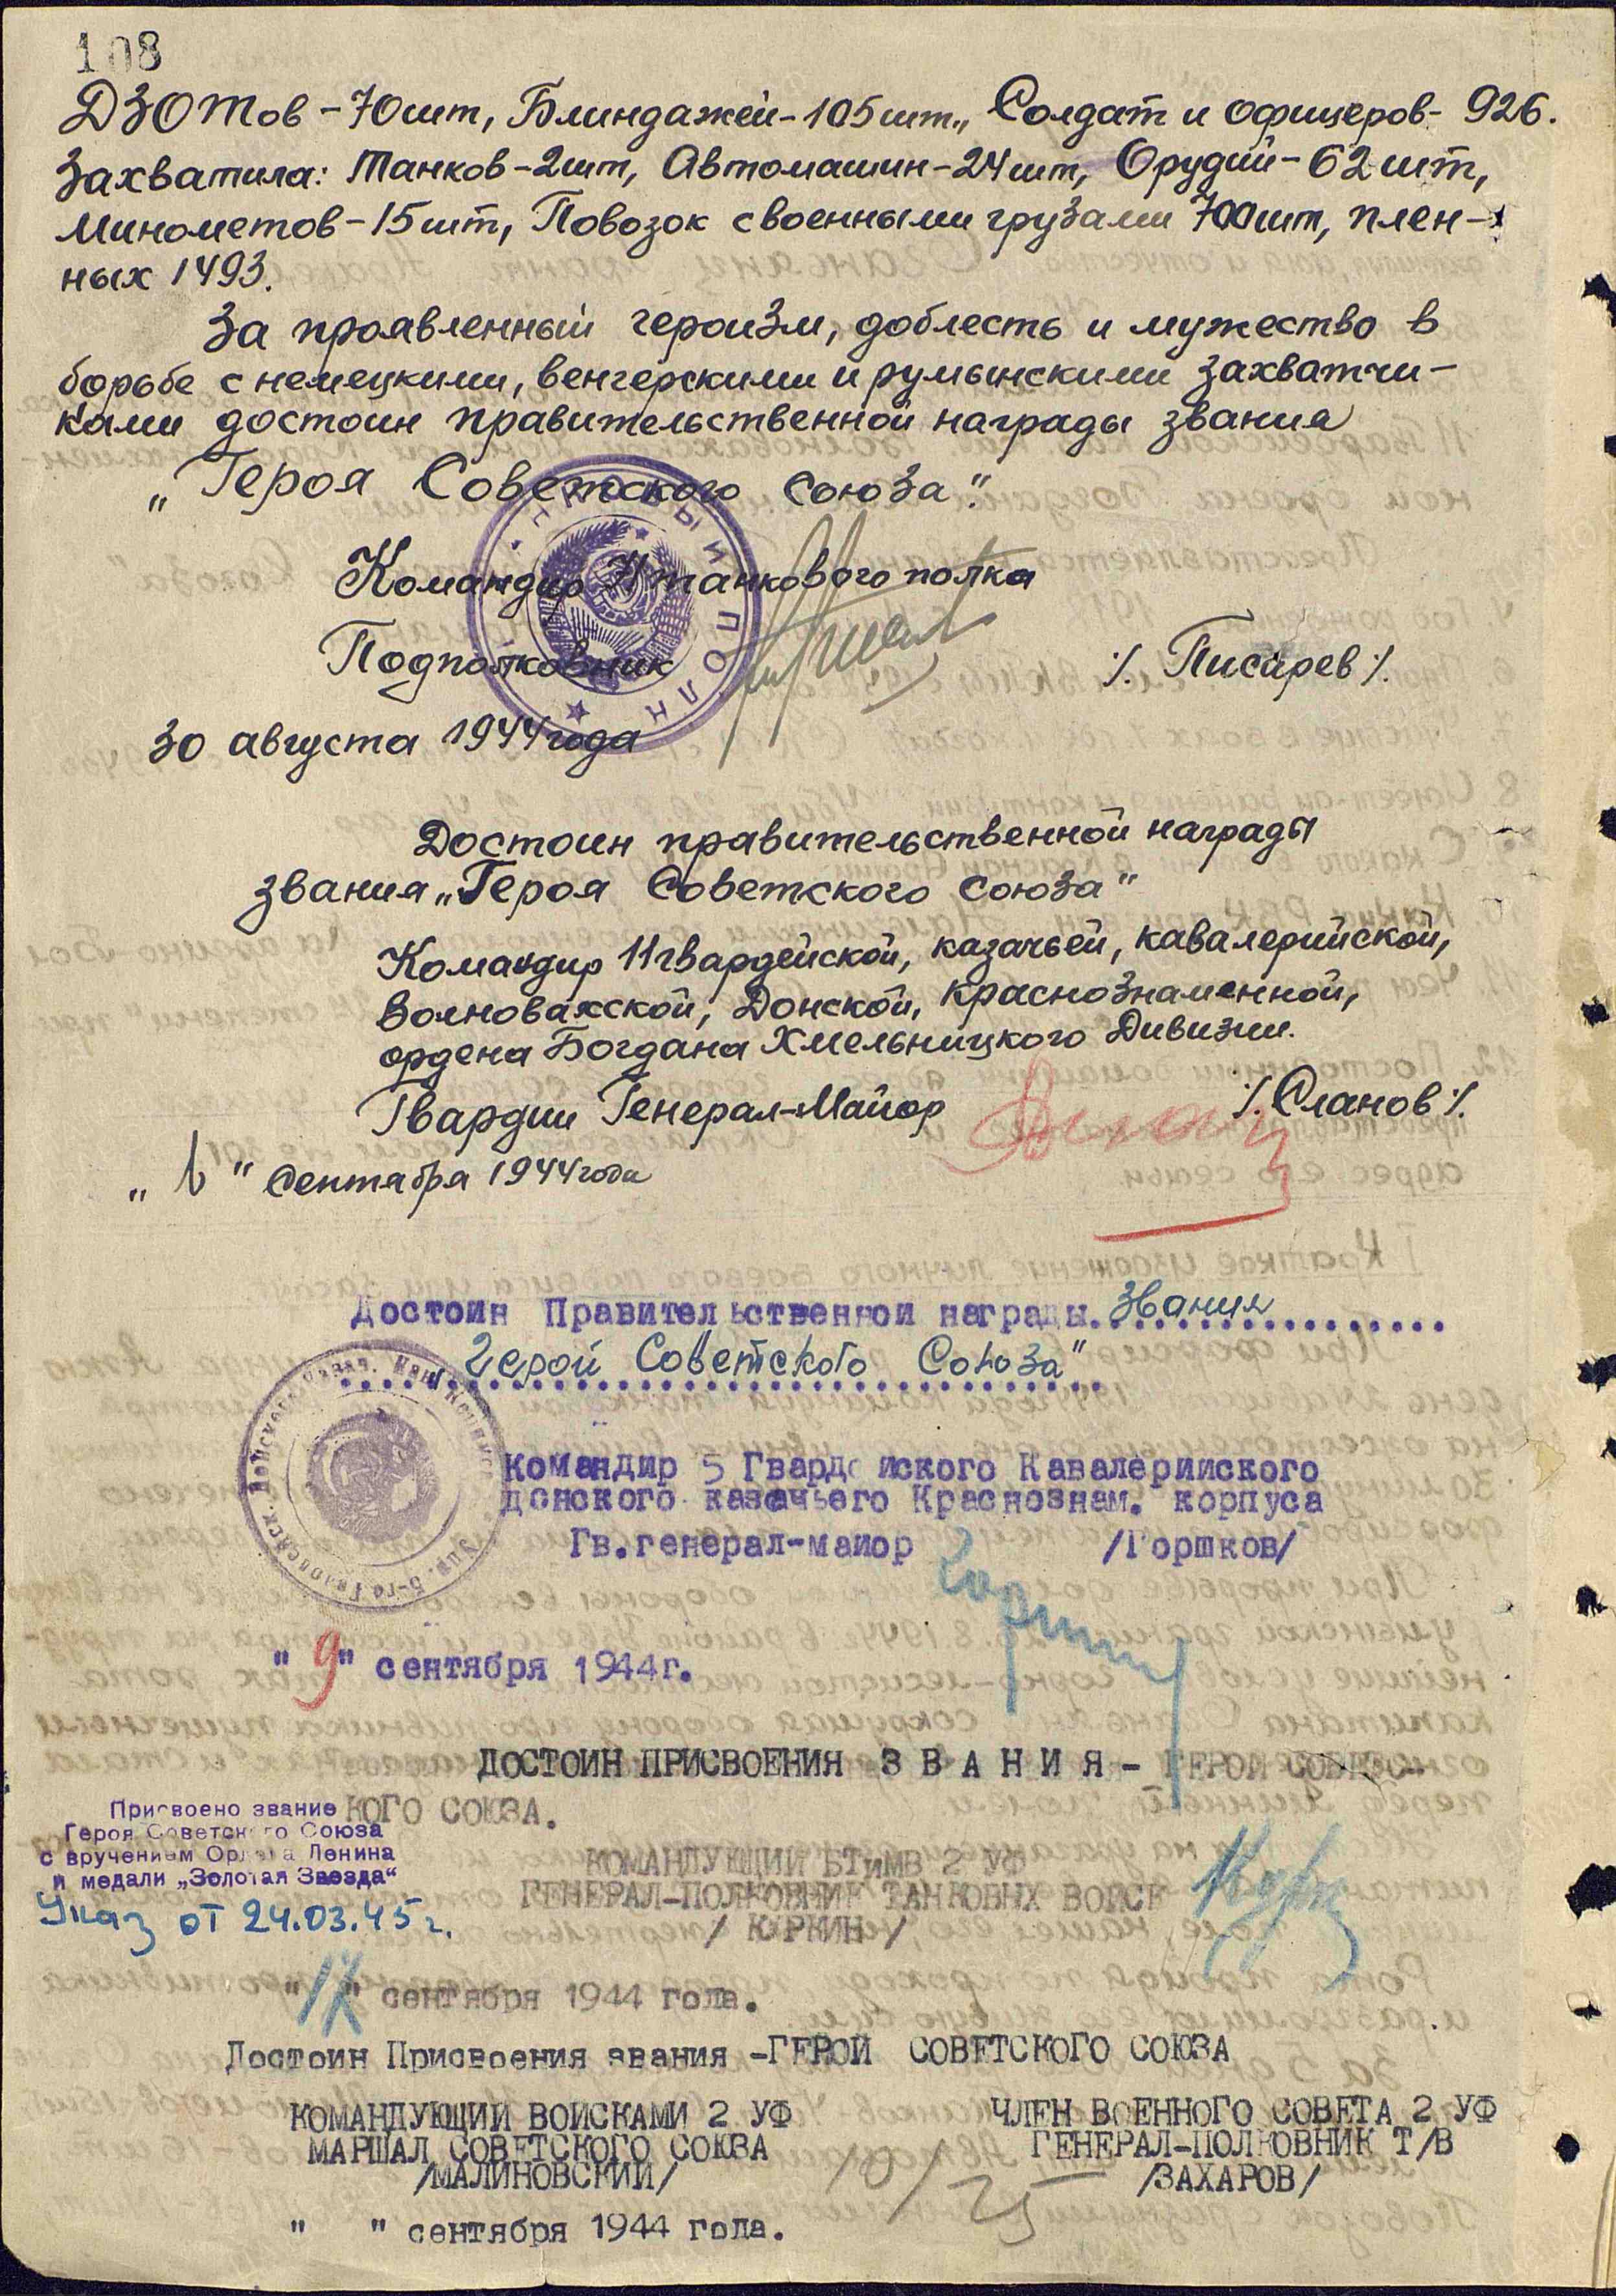 108
ДЗОТов - 70 шт, Блиндажей - 105 шт., Солдат и офицеров - 926.
Захватила: Танков - 2 шт, Автомашин - 24 шт, Орудий - 62 шт,
Минометов - 15 шт, Повозок с военными грузами 700 шт, плен-
ных 1493.
За проявленный героизм, доблесть и мужество в
борьбе с немецкими, венгерскими и румынскими захватчи-
ками достоин правительственной награды звания
„Героя Советского Союза".
Командир 71 танкового полка
Подполковник /. Писарев /.
30 августа 1944 года
Достоин правительственной награды
звания „Героя Советского Союза"
Командир 11 гвардейской, казачьей, кавалерийской,
Волновахской, Донской, краснознаменной,
ордена Богдана Хмельницкого Дивизии.
Гвардии Генерал-Майор /. Сланов /.
" " сентября 1944 года
Достоин Правительственной награды. звания
„Герой Советского Союза"
Командир 5 Гвардейского Кавалерийского
донского казачьего Краснознам. корпуса
Гв. генерал-майор /Горшков/
"9" сентября 1944 г.
ДОСТОИН ПРИСВОЕНИЯ З В А Н И Я - ГЕРОЙ СОВЕТС-
КОГО СОЮЗА.
Присвоено звание
Героя Советского Союза
с вручением Ордена Ленина
и медали „Золотая Звезда"
Указ от 24.03.45 г.
КОМАНДУЮЩИЙ БТиМВ 2 УФ
ГЕНЕРАЛ-ПОЛКОВНИК ТАНКОВЫХ ВОЙСК
/ КУРКИН /
" " сентября 1944 года.
Достоин Присвоения звания - ГЕРОЙ СОВЕТСКОГО СОЮЗА
КОМАНДУЮЩИЙ ВОЙСКАМИ 2 УФ
МАРШАЛ СОВЕТСКОГО СОЮЗА
/МАЛИНОВСКИЙ/
ЧЛЕН ВОЕННОГО СОВЕТА 2 УФ
ГЕНЕРАЛ-ПОЛКОВНИК Т/В
/ЗАХАРОВ/
" " сентября 1944 года.